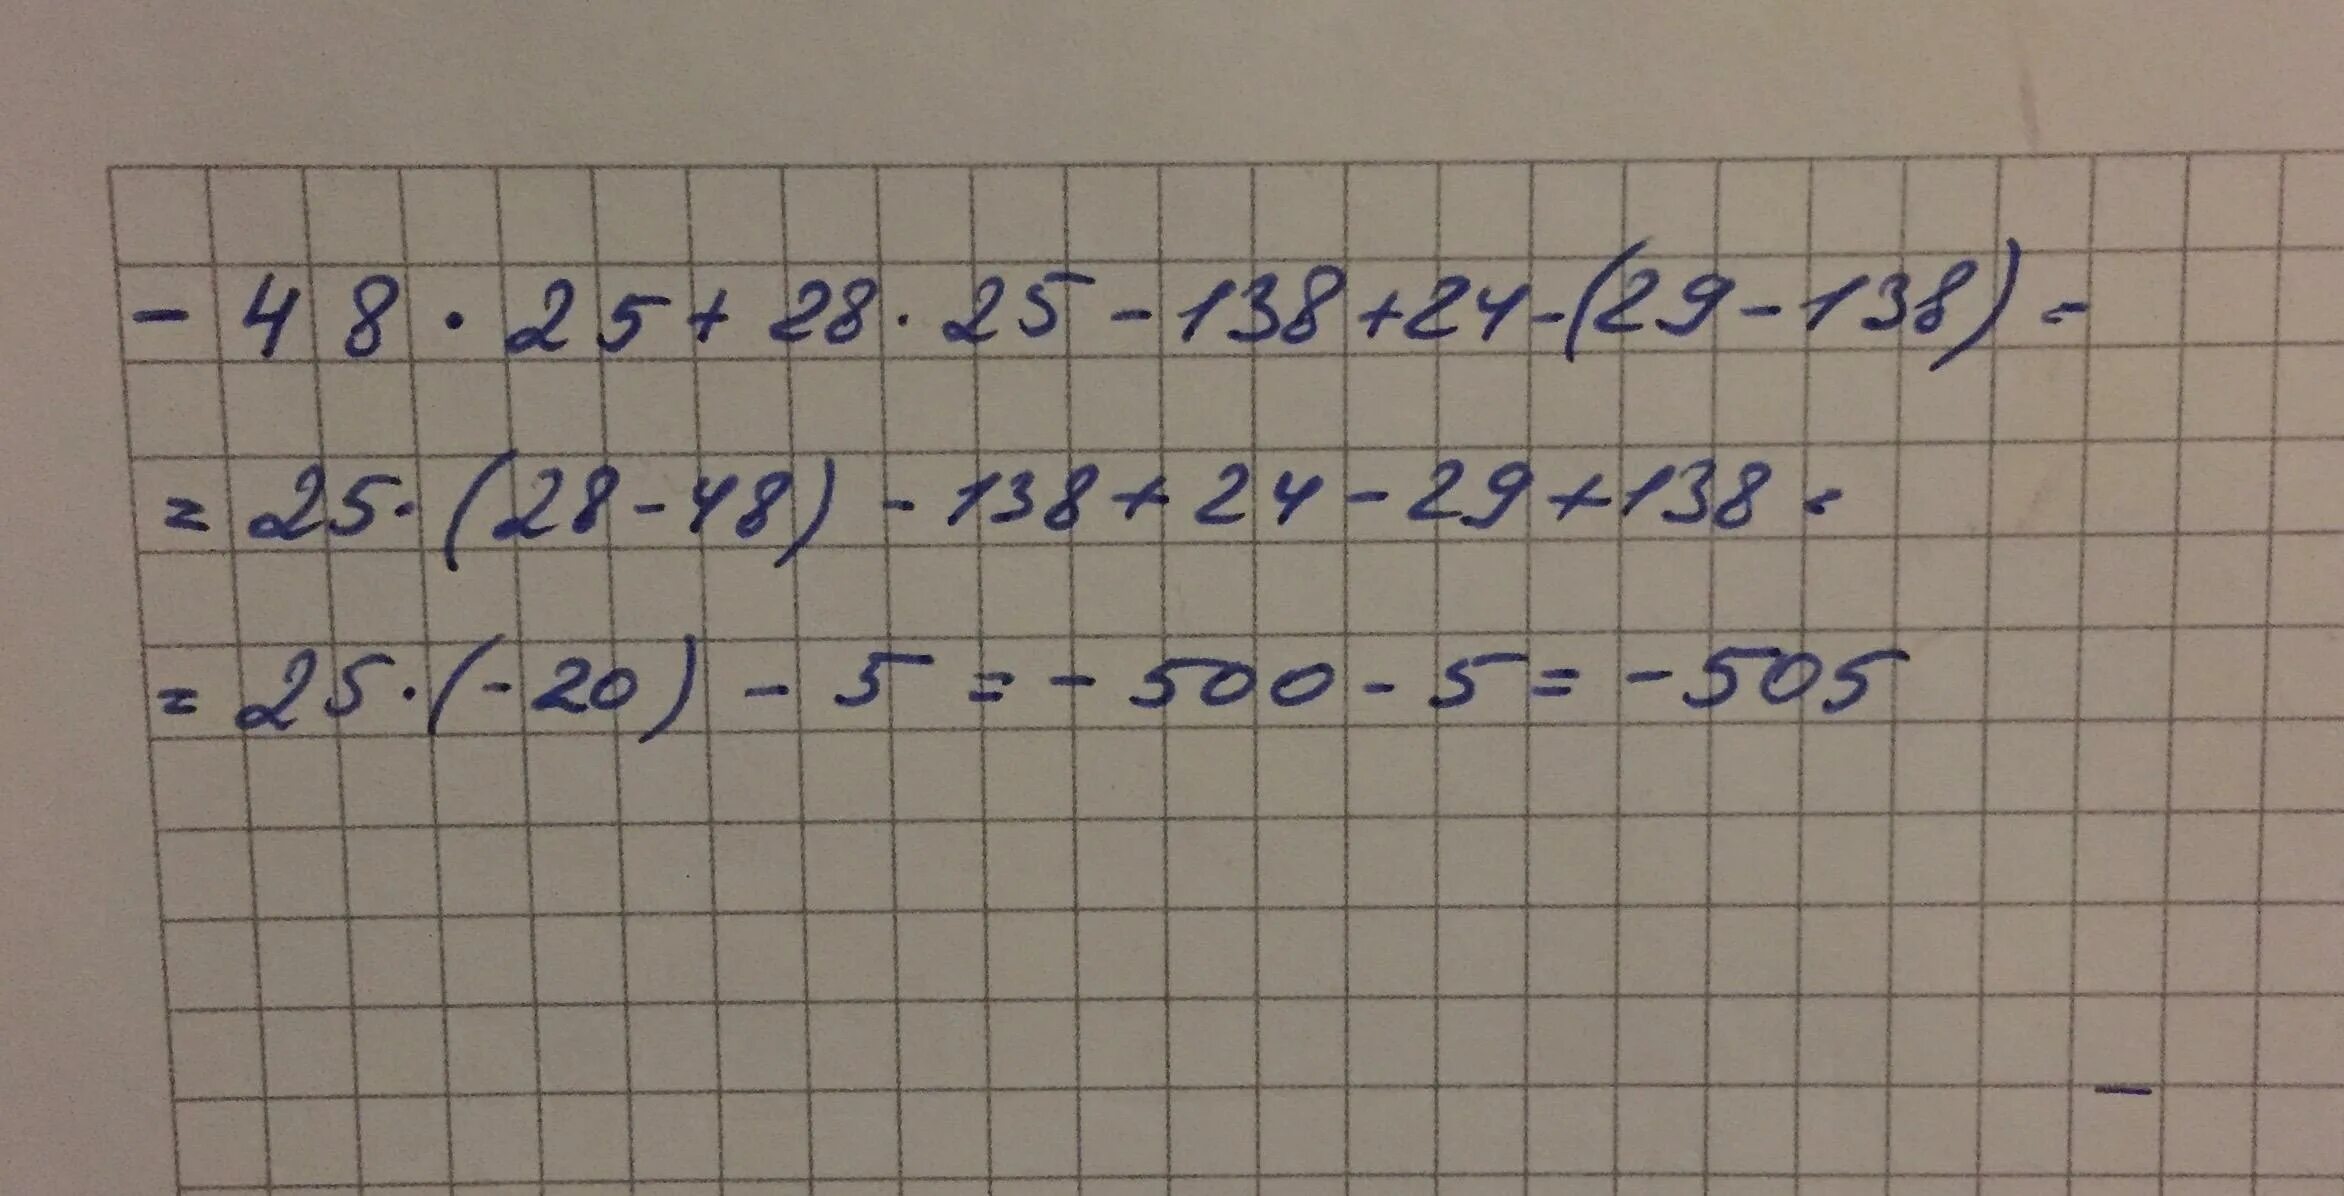 - 48 · 25 + 28 · 25 - 138 + 24 - (29 - 138) =
= 25 · (28 - 48) - 138 + 24 - 29 + 138 =
= 25 · (-20) - 5 = - 500 - 5 = - 505